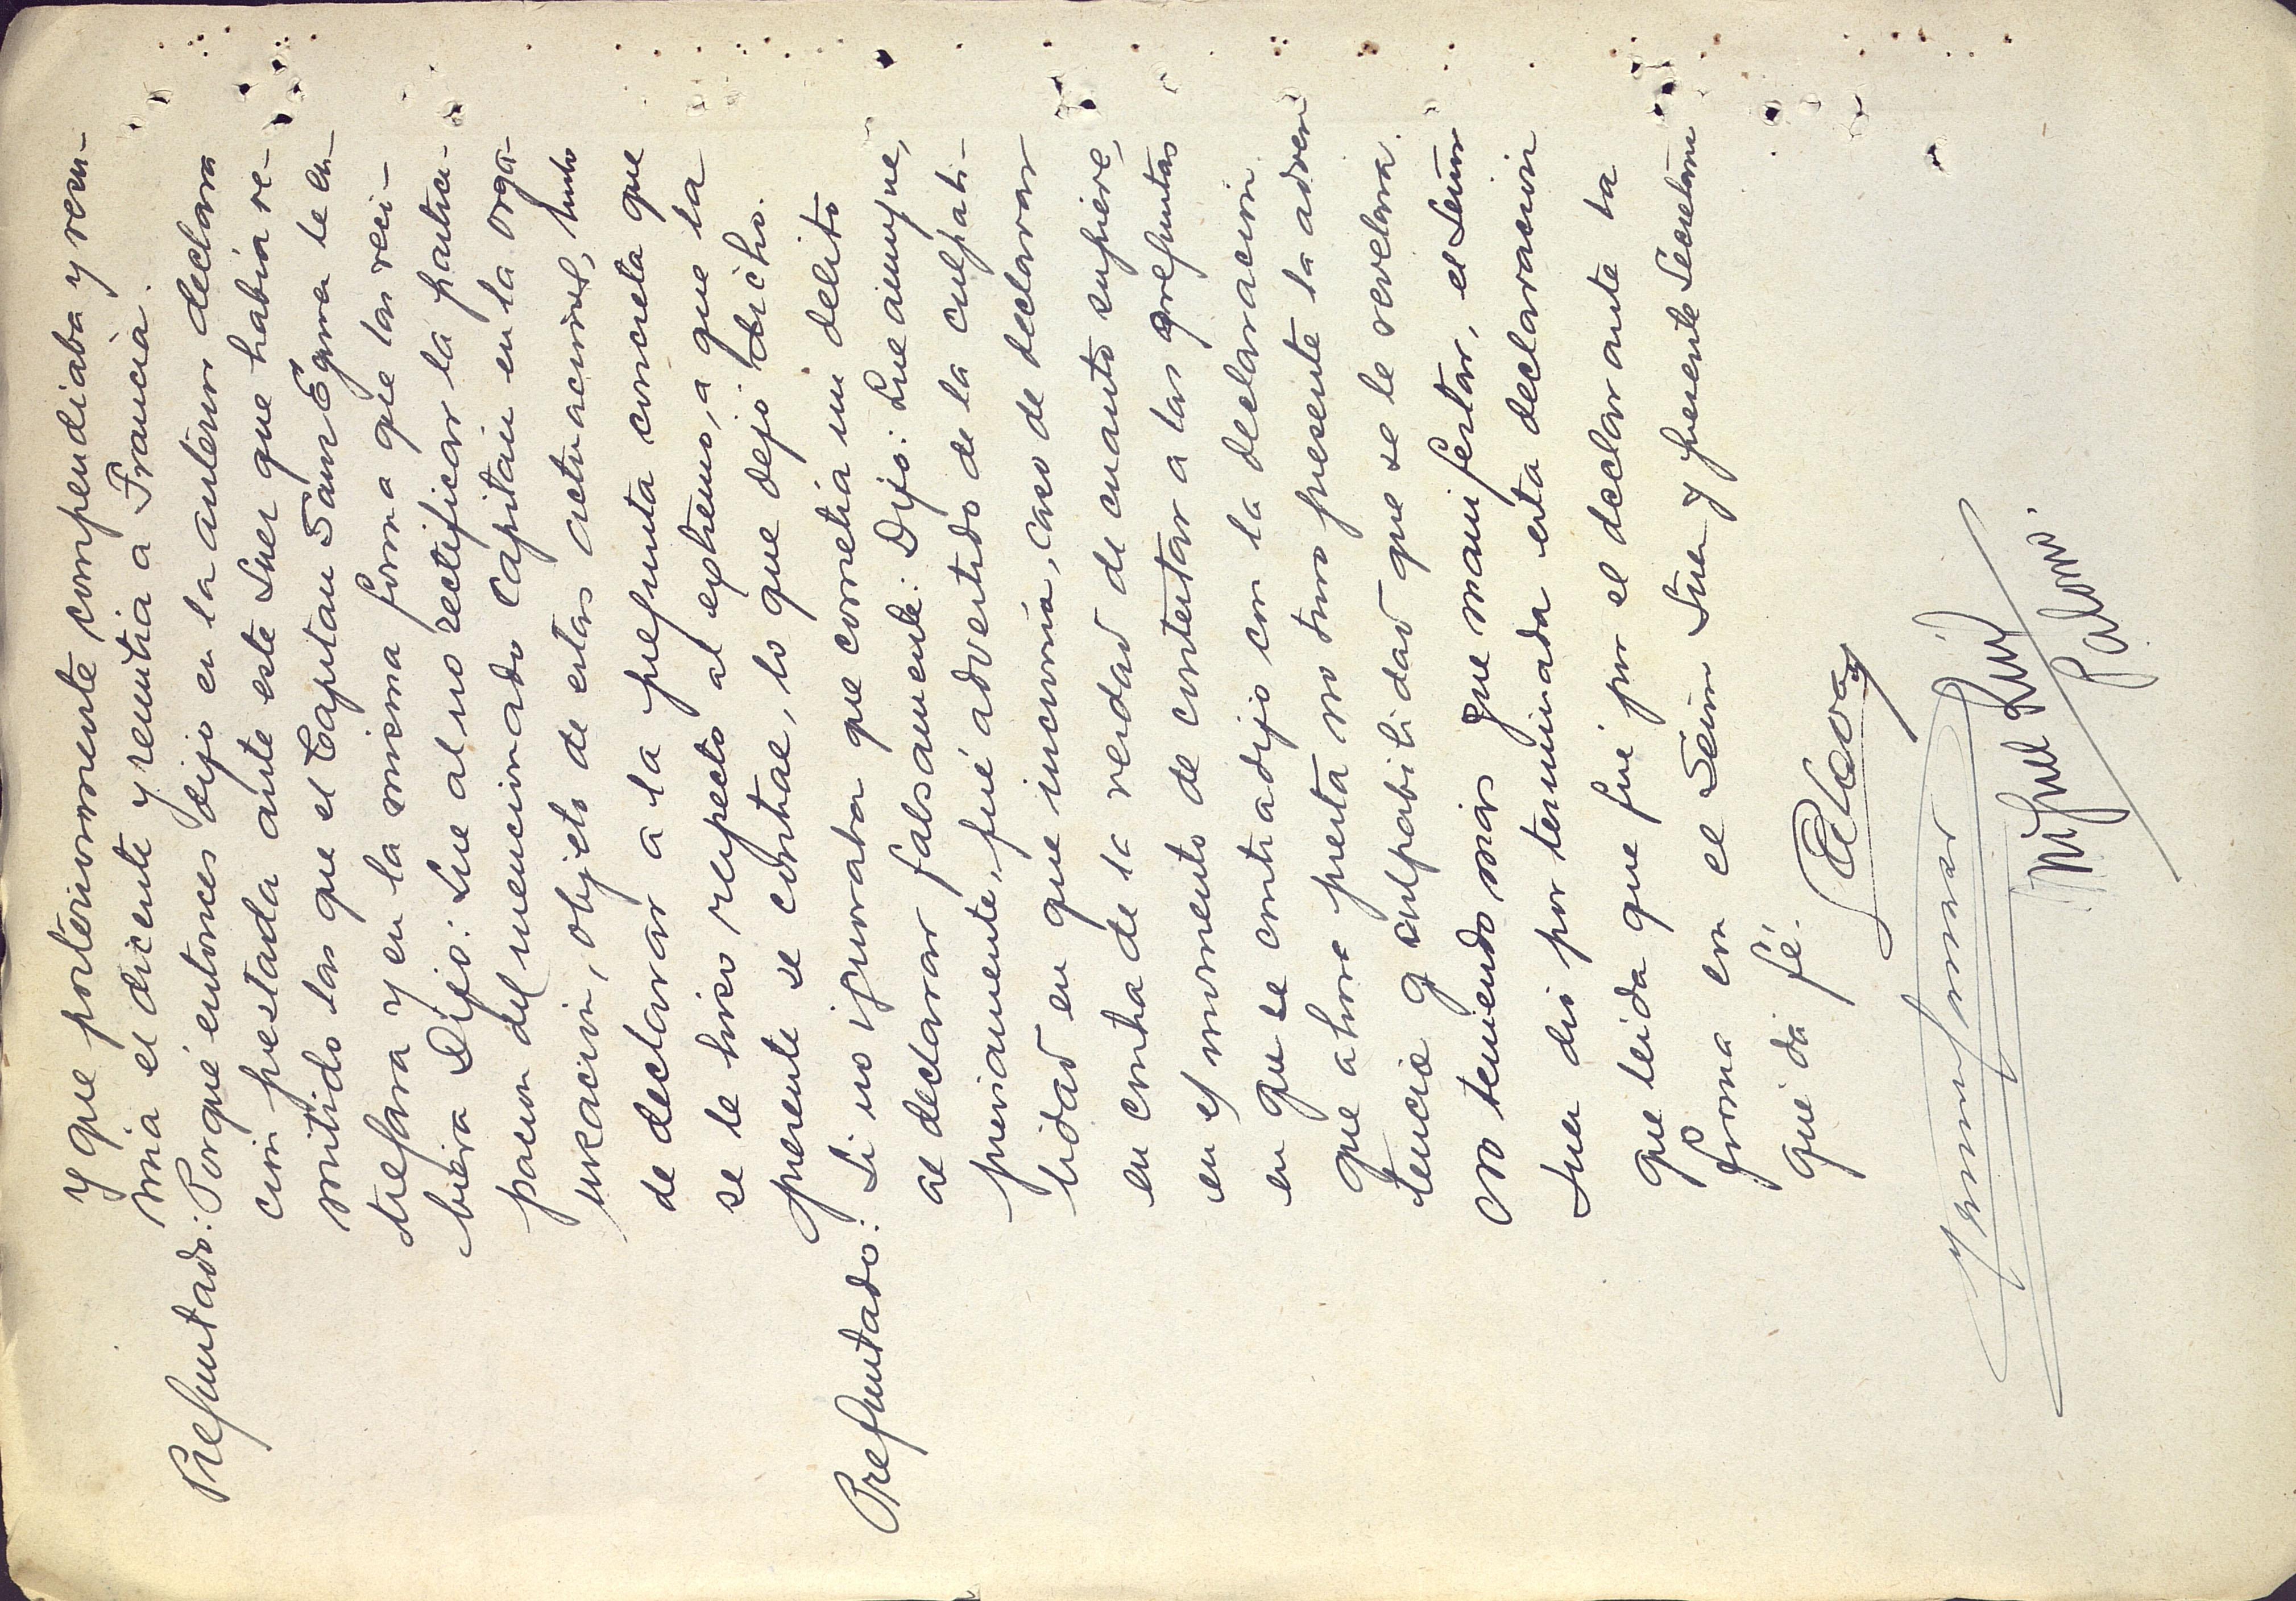 y que posteriormente compendiaba y reu-
nia el dicente y remitia a Francia.
Preguntado: Porqué entonces dijo en la anterior declara
ción prestada ante este Juez que habia re-
mitido las que el Capitan Sanz Egma le en-
tregara y en la misma forma que las reci-
biera Dijo: Que al no rectificar la partici-
pacion del mencionado Capitan en la orga-
nizacion, objeto de estas actuaciones, hubo
de declarar a la pregunta concreta que
se le hizo respecto al extremo, a que la
presente se contrae, lo que dejo dicho.
Preguntado: Si no ignoraba que cometia un delito
al declarar falsamente: Dijo: Que aunque,
previamente, fué advertido de la culpabi-
lidad en que incurria, caso de declarar
en contra de la verdad de cuanto supiere,
en el momento de contestar a las preguntas
en que se contradijo con la declaracion
que ahora presta no tuvo presente la adver
tencia y culpabilidad que se le revelara.
No teniendo mas que manifestar, el Señor
Juez dió por terminada esta declaracion
que leida que fué por el declarante la
firma con el Señor Juez y presente Secretario
que da fé.
Miguel Ruiz
Palomo.